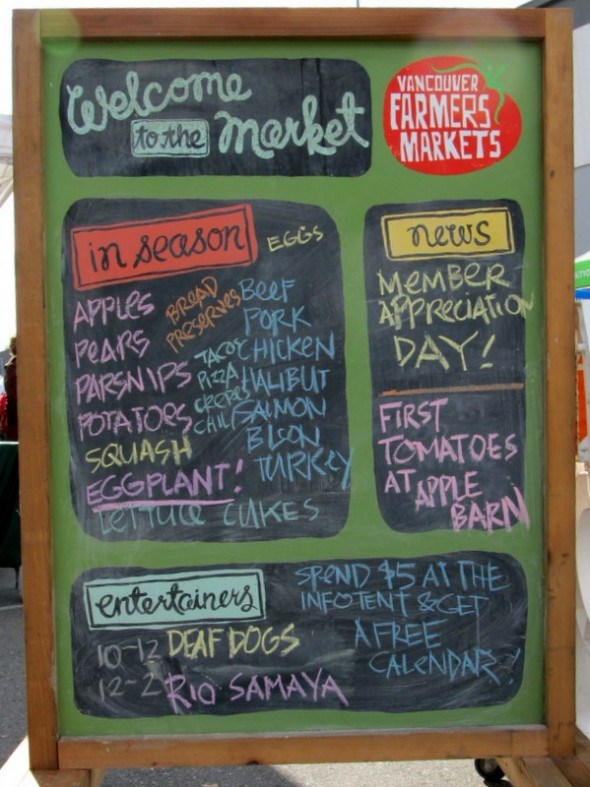 Welcome
to the market
VANCOUVER
FARMERS
MARKETS
in season
EGGS
APPLES
PEARS
PARSNIPS
POTATOES
SQUASH
EGGPLANT!
LETTUCE CUKES
BREAD
PRESERVES
TACOS
PIZZA
CREPES
CHILI
BEEF
PORK
CHICKEN
HALIBUT
SALMON
BISON
TURKEY
news
MEMBER
APPRECIATION
DAY!
FIRST
TOMATOES
AT APPLE
BARN
entertainers
10-12 DEAF DOGS
12-2 RIO SAMAYA
SPEND $5 AT THE
INFOTENT & GET
A FREE
CALENDAR!